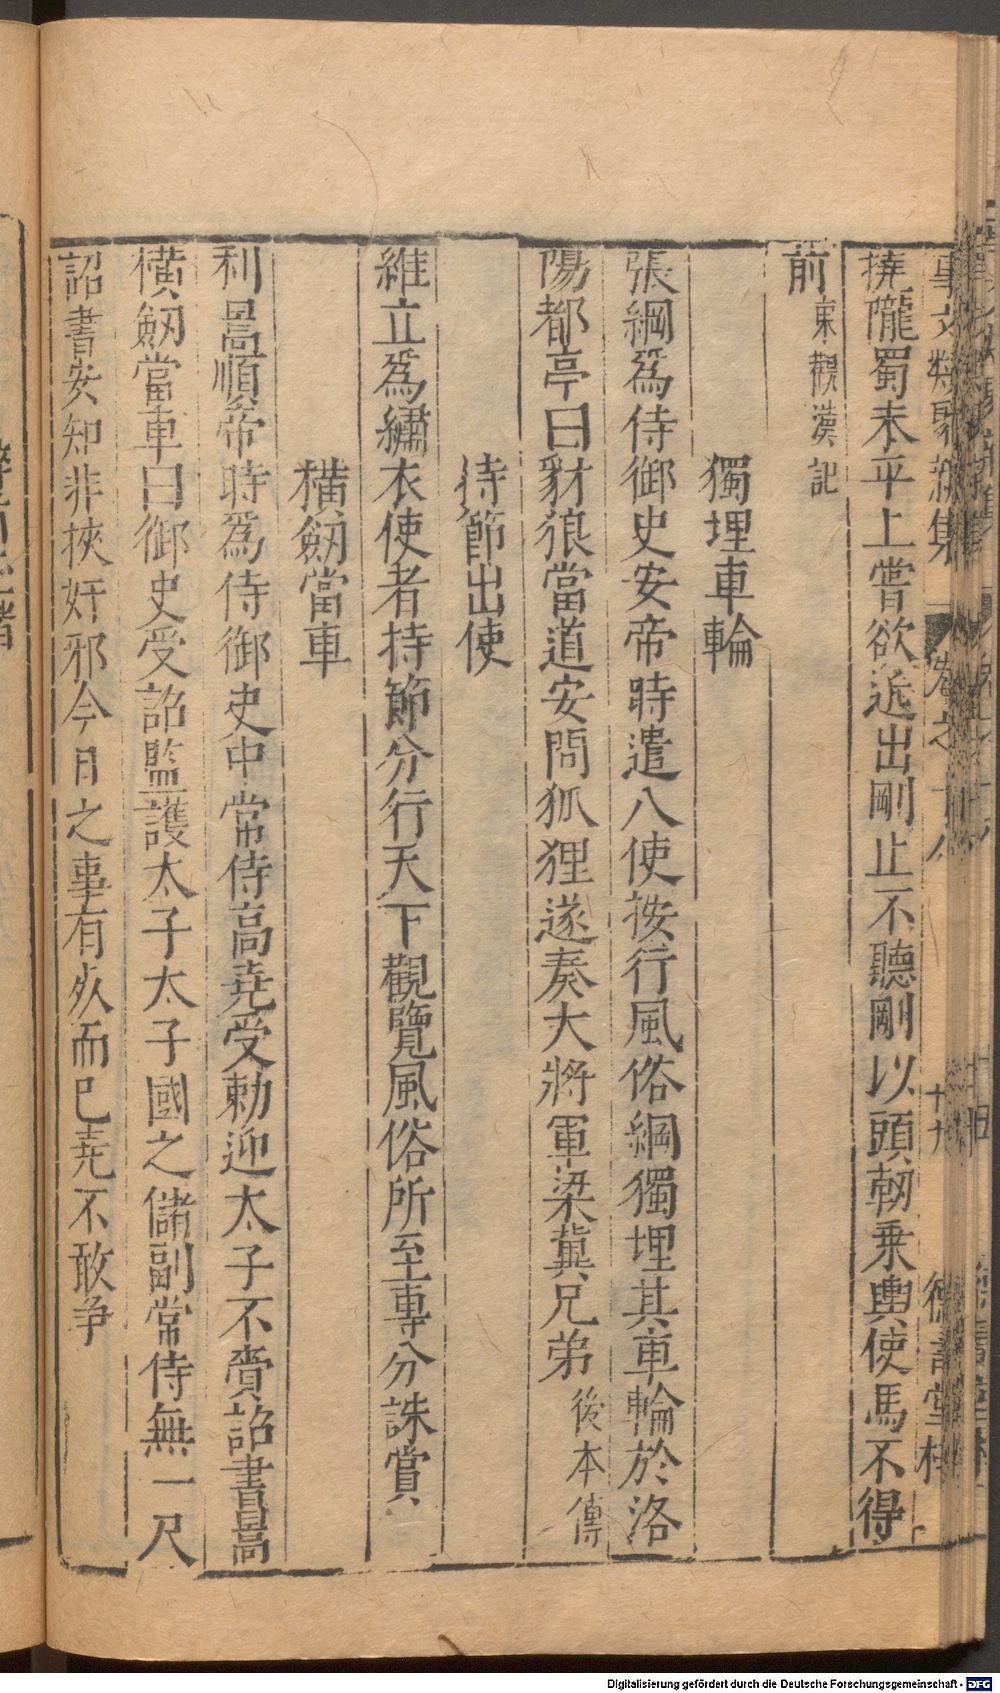 事文類聚新集 卷之十八 十九 德壽堂梓
撓隴蜀未平上嘗欲近出剛止不聽剛以頭軔乗輿使馬不得
前東觀漢記
獨埋車輪
張綱爲侍御史安帝時遣八使按行風俗綱獨埋其車輪於洛
陽都亭曰豺狼當道安問狐狸遂奏大將軍梁冀兄弟後本傳
持節出使
維立爲繡衣使者持節分行天下觀覽風俗所至専分誅賞
橫劒當車
利暠順帝時爲侍御史中常侍高尭受勅迎太子不賫詔書暠
橫劒當車曰御史受詔監護太子太子國之儲副常侍無一尺
詔書安知非挾奸邪今日之事有死而已尭不敢争
Digitalisierung gefördert durch die Deutsche Forschungsgemeinschaft - DFG